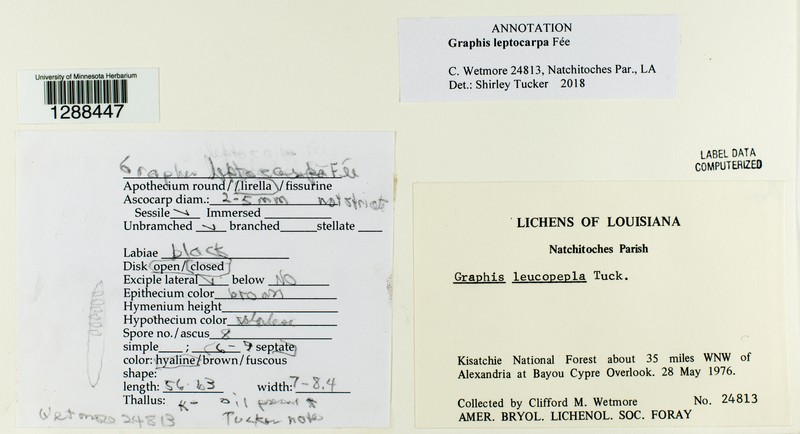 ANNOTATION
Graphis leptocarpa Fée
C. Wetmore 24813, Natchitoches Par., LA
Det.: Shirley Tucker 2018
University of Minnesota Herbarium
1288447
LABEL DATA
COMPUTERIZED
Graphis leptocarpa Fée
Apothecium round/lirella/fissurine
Ascocarp diam.: 2-5 mm not striate
Sessile ✓ Immersed
Unbramched ✓ branched stellate
Labiae black
Disk open/closed
Exciple lateral ✓ below NO
Epithecium color brown
Hymenium height
Hypothecium color
Spore no./ascus 8
simple ; 6-9 septate
color: hyaline/brown/fuscous
shape:
length: 56-63 width: 7-8.4
Thallus: K- oil present
Wetmore 24813 Tucker notes
LICHENS OF LOUISIANA
Natchitoches Parish
Graphis leucopepla Tuck.
Kisatchie National Forest about 35 miles WNW of
Alexandria at Bayou Cypre Overlook. 28 May 1976.
Collected by Clifford M. Wetmore No. 24813
AMER. BRYOL. LICHENOL. SOC. FORAY